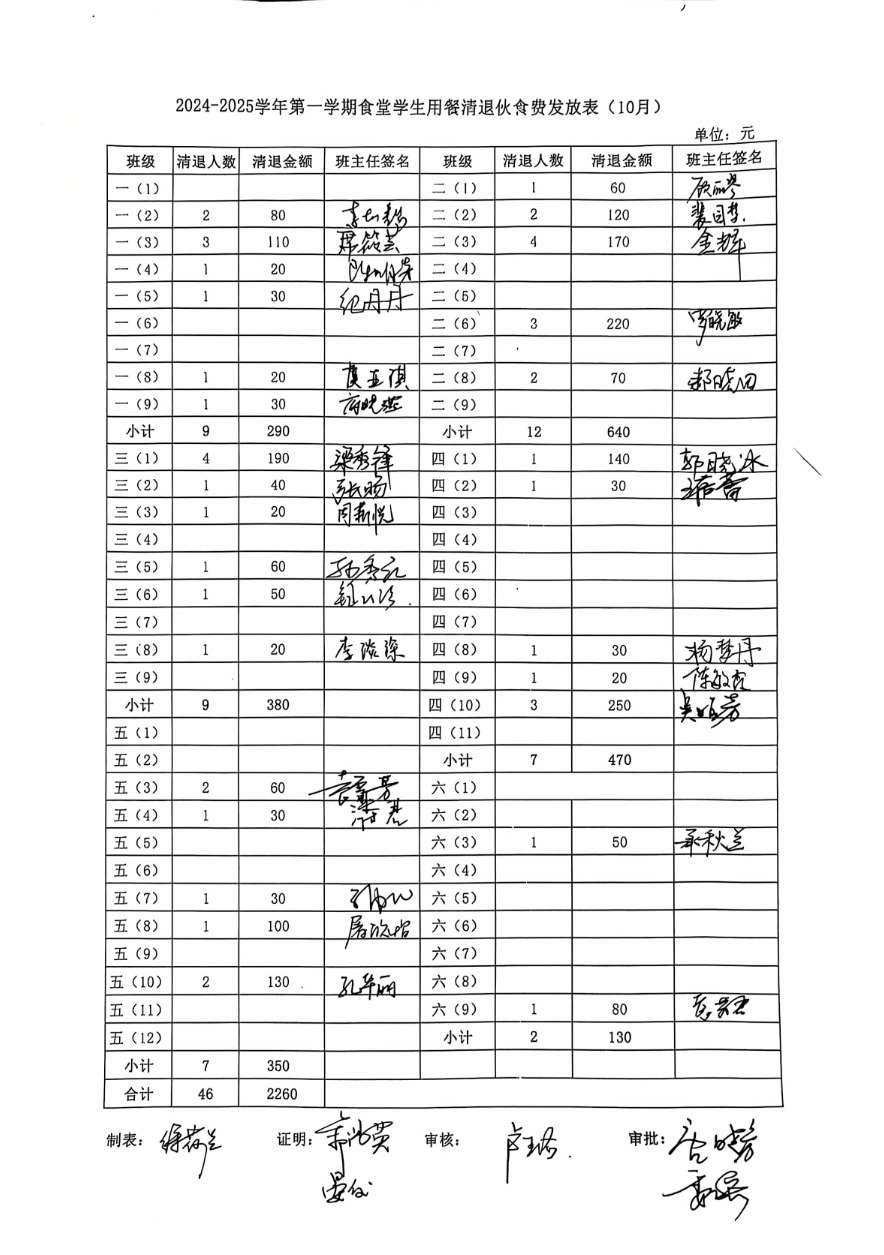 2024-2025学年第一学期食堂学生用餐清退伙食费发放表（10月）
单位：元
班级 清退人数 清退金额 班主任签名 班级 清退人数 清退金额 班主任签名
一（1） 二（1） 1 60
一（2） 2 80 二（2） 2 120
一（3） 3 110 二（3） 4 170 金辉
一（4） 1 20 二（4）
一（5） 1 30 纪丹丹 二（5）
一（6） 二（6） 3 220 罗晓敏
一（7） 二（7）
一（8） 1 20 二（8） 2 70
一（9） 1 30 二（9）
小计 9 290 小计 12 640
三（1） 4 190 梁秀锋 四（1） 1 140 郭晓冰
三（2） 1 40 张旸 四（2） 1 30
三（3） 1 20 周新悦 四（3）
三（4） 四（4）
三（5） 1 60 四（5）
三（6） 1 50 四（6）
三（7） 四（7）
三（8） 1 20 四（8） 1 30 杨梦丹
三（9） 四（9） 1 20
小计 9 380 四（10） 3 250
五（1） 四（11）
五（2） 小计 7 470
五（3） 2 60 六（1）
五（4） 1 30 六（2）
五（5） 六（3） 1 50
五（6） 六（4）
五（7） 1 30 六（5）
五（8） 1 100 六（6）
五（9） 六（7）
五（10） 2 130 孔华丽 六（8）
五（11） 六（9） 1 80
五（12） 小计 2 130
小计 7 350
合计 46 2260
制表： 证明： 审核： 审批：